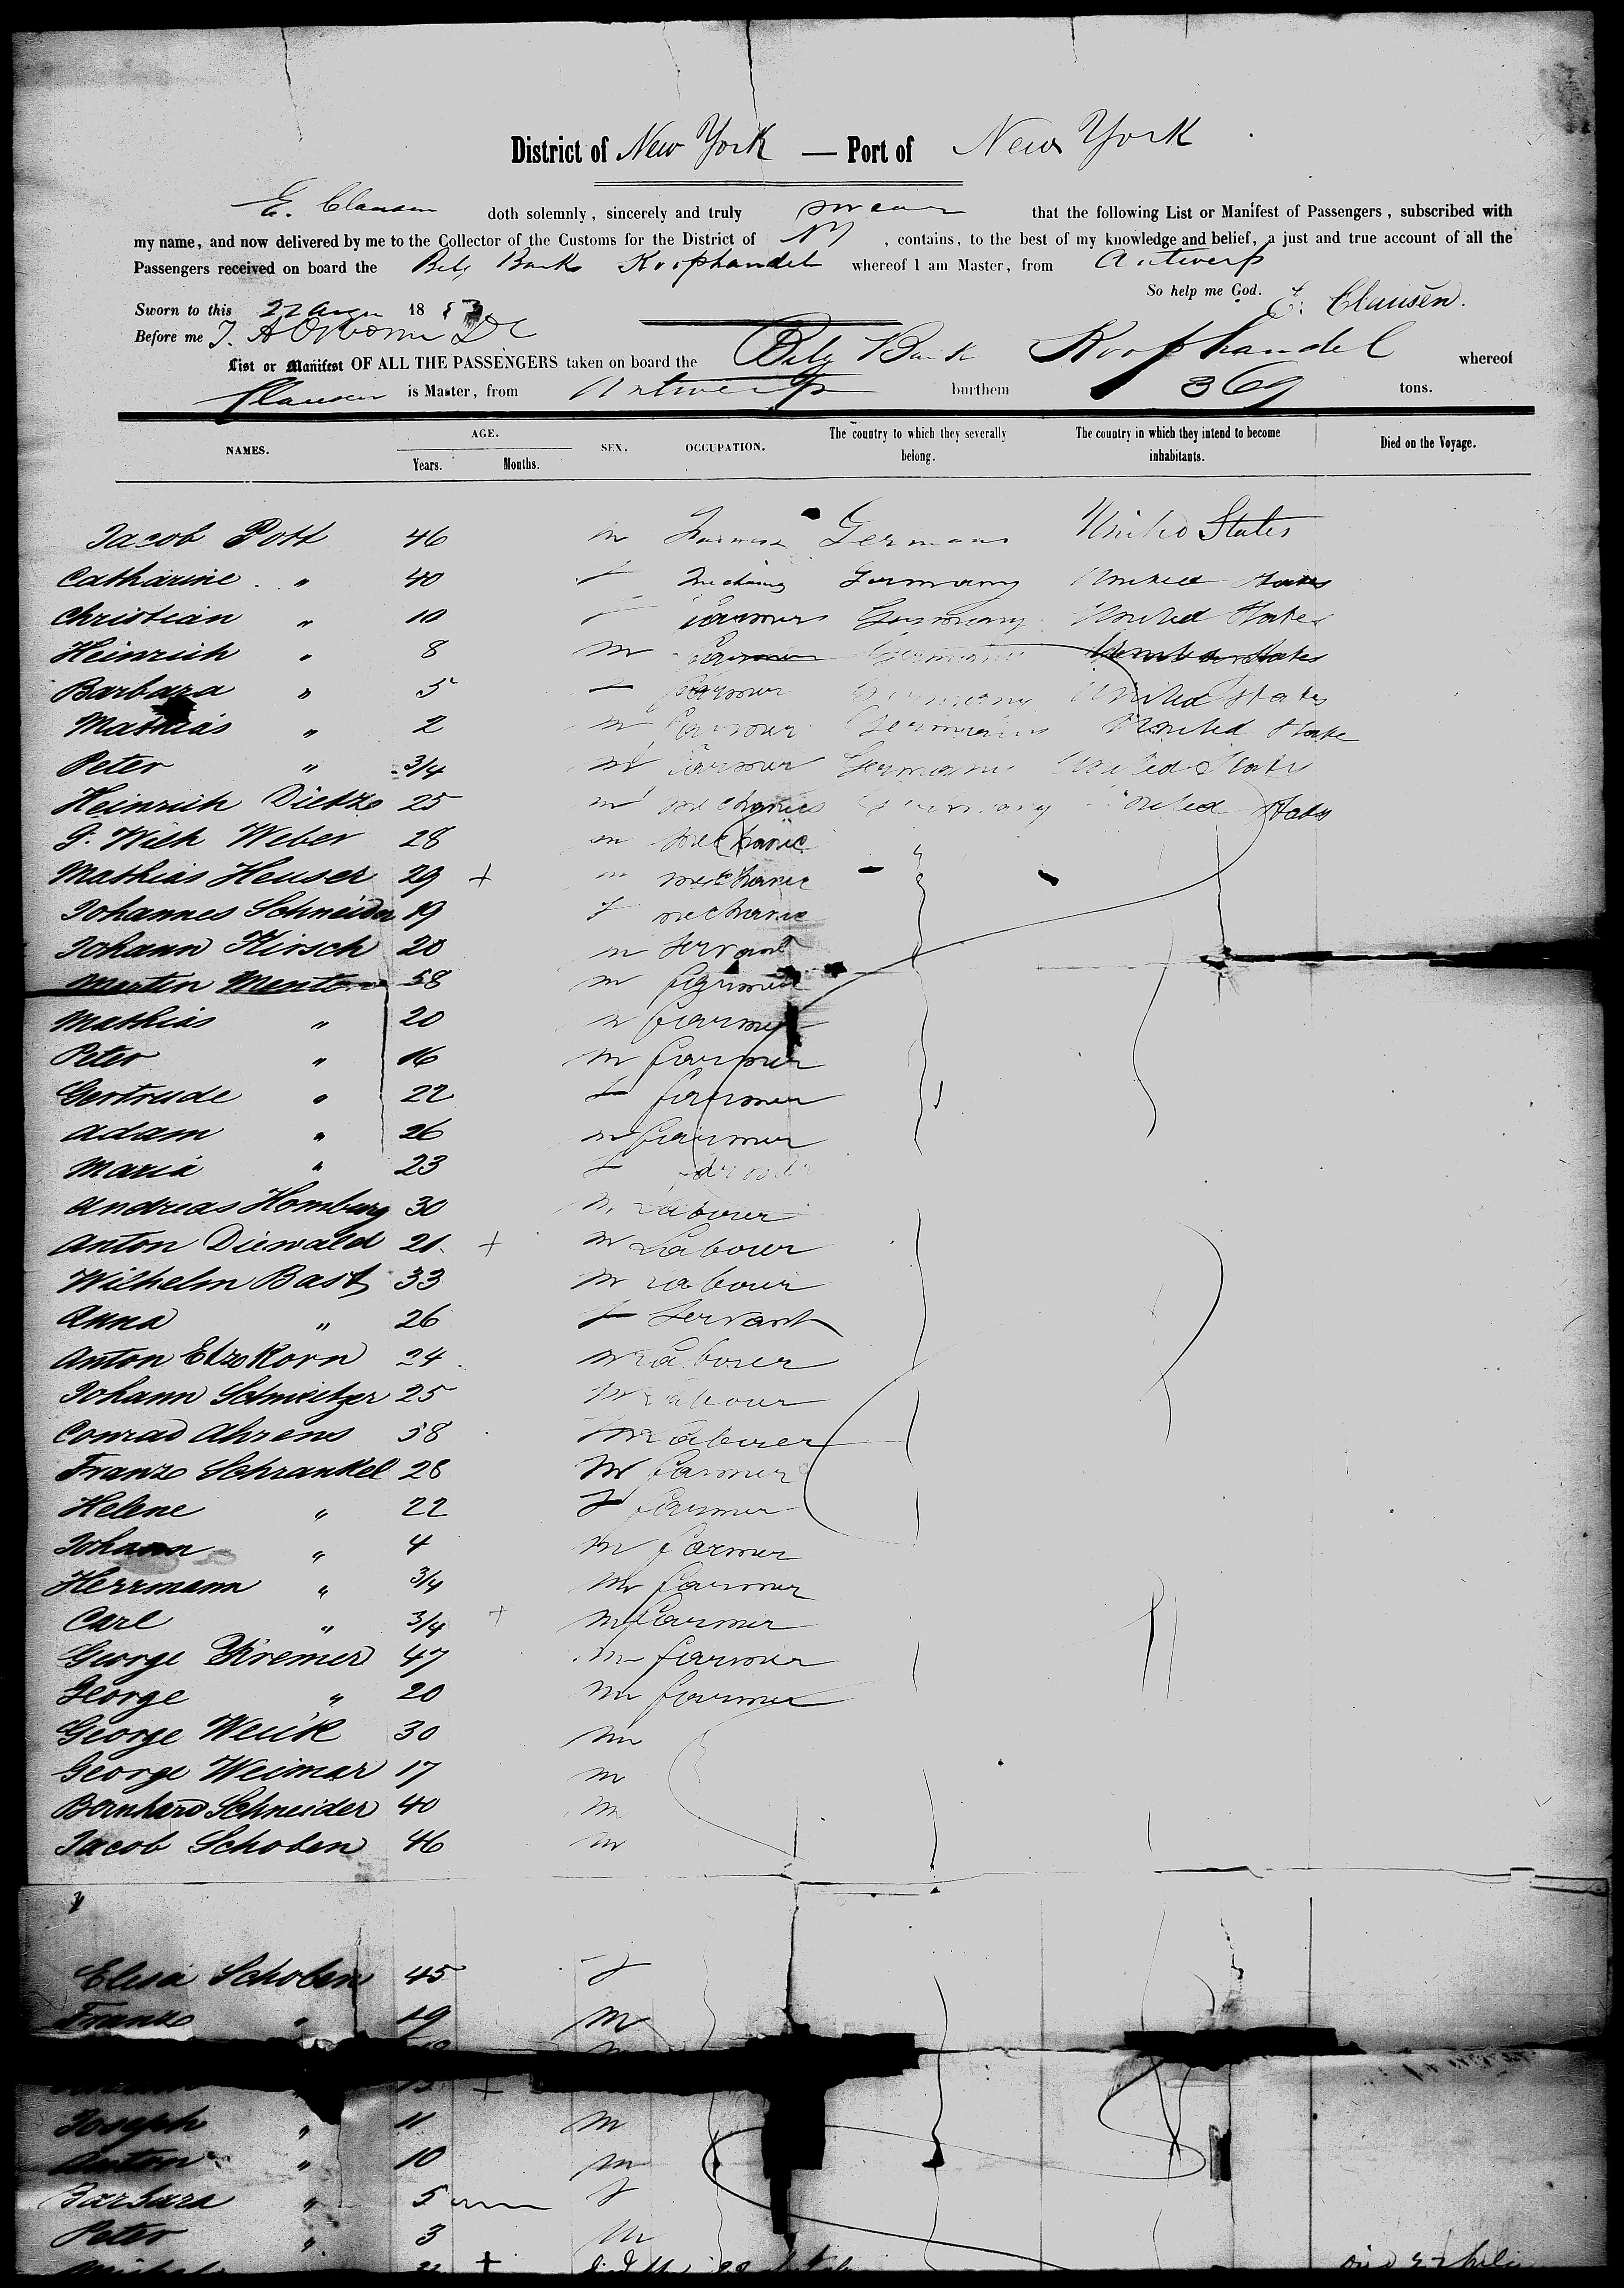 District of New York — Port of New York
E. Clausen doth solemnly, sincerely and truly swear that the following List or Manifest of Passengers, subscribed with
my name, and now delivered by me to the Collector of the Customs for the District of NY, contains, to the best of my knowledge and belief, a just and true account of all the
Passengers received on board the Belg Bark Koophandel whereof I am Master, from Antwerp
So help me God. E. Clausen.
Sworn to this 22 18 53
Before me
List or Manifest OF ALL THE PASSENGERS taken on board the Belg Bark Koophandel whereof
Clausen is Master, from Antwerp burthem 369 tons.
NAMES. AGE. Years. Months. SEX. OCCUPATION. The country to which they severally belong. The country in which they intend to become inhabitants. Died on the Voyage.
Jacob Pott 46 m Germany United States
Catharine " 40 f Germany United States
Christian " 10 Farmer Germany United States
Heinrich " 8 m Farmer Germany United States
Barbara " 5 f farmer Germany United States
Mathias " 2 m Farmer Germany United State
Peter " 3/4 m Farmer Germany United State
Heinrich Dietze 25 m mechanics Germany United States
G. Wilh Weber 28 m mechanic
Mathias Heuser 29 + m mechanic
Johannes Schneider 19 f mechanic
Johann Hirsch 20 m Servant
Martin 58 m farmer
Mathias " 20 m farmer
Peter " 16 m farmer
Gertrude " 22 f farmer
Adam " 26 m farmer
Maria " 23 f
Andreas Homburg 30 m Labourer
Anton Diewald 21 + m Labourer
Wilhelm Bast 33 m Labour
Anna " 26 f Servant
Anton Etzkorn 24 m Laborer
Johann Schweitzer 25 m Labour
Conrad Ahrens 58 m Laborer
Franz Schrankel 28 m farmer
Helene " 22 f farmer
Johann " 4 m farmer
Herrmann " 3/4 m farmer
Carl " 3/4 + m farmer
George Kremer 47 m farmer
George " 20 m farmer
George Weick 30 m
George Weimar 17 m
Bernhard Schneider 40 m
Jacob Schoben 46 m
Elisa Schoben 45 f
Franz " 19 m
+
Joseph " 11 m
Anton " 10 m
Barbara " 5 f
Peter " 3 m
+